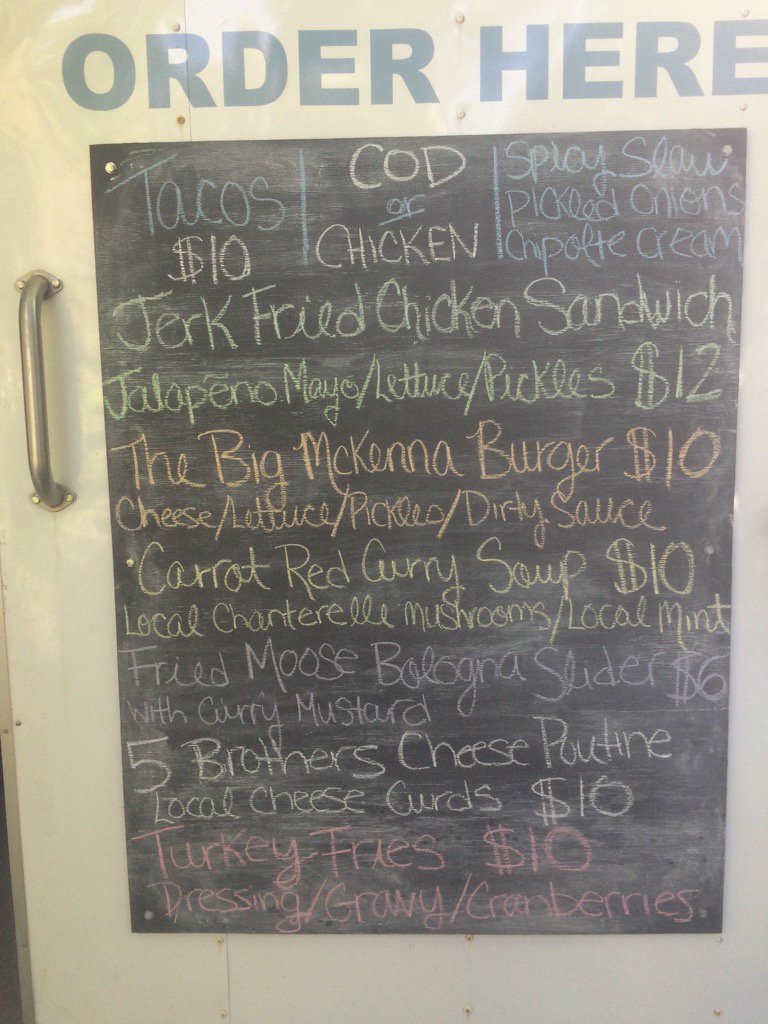 ORDER HERE
Tacos
$10
COD
or
CHICKEN
Spicy Slaw
Pickled Onions
Chipolte Cream
Jerk Fried Chicken Sandwich
Jalapēno Mayo/Lettuce/Pickles $12
The Big McKenna Burger $10
Cheese/Lettuce/Pickles/Dirty Sauce
Carrot Red Curry Soup $10
Local Chanterelle Mushrooms/Local Mint
Fried Moose Bologna Slider $6
with Curry Mustard
5 Brothers Cheese Poutine
Local Cheese Curds $10
Turkey-Fries $10
Dressing/Gravy/Cranberries